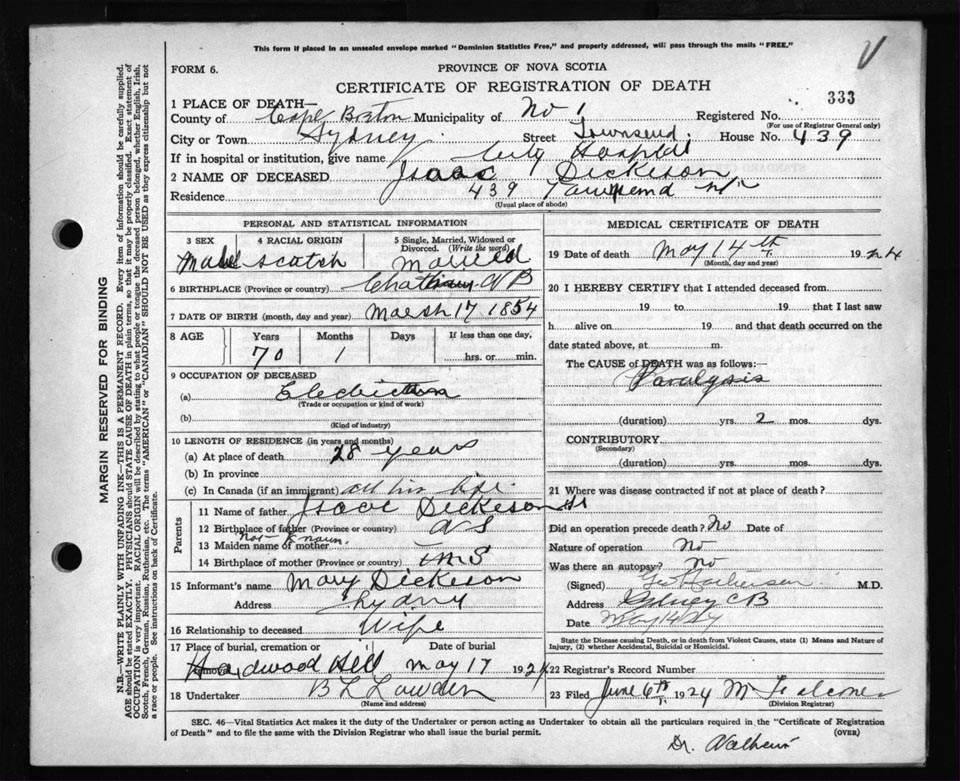 This form if placed in an unsealed envelope marked "Dominion Statistics Free," and properly addressed, will pass through the mails "FREE."
V
FORM 6.
PROVINCE OF NOVA SCOTIA
CERTIFICATE OF REGISTRATION OF DEATH
333
1 PLACE OF DEATH—
County of Cape Breton Municipality of No 1 Registered No.
(For use of Registrar General only)
City or Town Sydney Street Townsend House No. 439
If in hospital or institution, give name City Hospital
2 NAME OF DECEASED Isaac Dickeson
Residence 439 Townsend St
(Usual place of abode)
PERSONAL AND STATISTICAL INFORMATION
3 SEX 4 RACIAL ORIGIN 5 Single, Married, Widowed or Divorced. (Write the word)
Male Scotch Married
6 BIRTHPLACE (Province or country) Chatham N B
7 DATE OF BIRTH (month, day and year) March 17 1854
8 AGE Years Months Days If less than one day,
70 1 hrs. or min.
9 OCCUPATION OF DECEASED
(a) Electrician
(Trade or occupation or kind of work)
(b)
(Kind of industry)
10 LENGTH OF RESIDENCE (in years and months)
(a) At place of death 28 years
(b) In province
(c) In Canada (if an immigrant) all his life
Parents
11 Name of father Isaac Dickeson Sr
12 Birthplace of father (Province or country) N S
13 Maiden name of mother Not Known
14 Birthplace of mother (Province or country) N S
15 Informant's name Mary Dickeson
Address Sydny
16 Relationship to deceased Wife
17 Place of burial, cremation or removal Date of burial
Hardwood Hill May 17 1924
18 Undertaker
(Name and address)
MEDICAL CERTIFICATE OF DEATH
19 Date of death May 14th 1924
(Month, day and year)
20 I HEREBY CERTIFY that I attended deceased from
19 to 19 that I last saw
h alive on 19 and that death occurred on the
date stated above, at m.
The CAUSE of DEATH was as follows:—
Paralysis
(duration) yrs. 2 mos. dys.
CONTRIBUTORY
(Secondary)
(duration) yrs. mos. dys.
21 Where was disease contracted if not at place of death?
Did an operation precede death? No Date of
Nature of operation No
Was there an autopsy? No
(Signed) M.D.
Address Sydney C B
Date May 14/24
State the Disease causing Death, or in death from Violent Causes, state (1) Means and Nature of
Injury, (2) whether Accidental, Suicidal or Homicidal.
22 Registrar's Record Number
23 Filed June 6th 1924
(Division Registrar)
SEC. 46—Vital Statistics Act makes it the duty of the Undertaker or person acting as Undertaker to obtain all the particulars required in the "Certificate of Registration
of Death" and to file the same with the Division Registrar who shall issue the burial permit. (OVER)
Dr.
MARGIN RESERVED FOR BINDING
N.B.—WRITE PLAINLY WITH UNFADING INK—THIS IS A PERMANENT RECORD. Every item of information should be carefully supplied.
AGE should be stated EXACTLY. PHYSICIANS should STATE CAUSE OF DEATH in plain terms, so that it may be properly classified. Exact statement of
OCCUPATION is very important. RACIAL ORIGIN will be described by stating to what people or tongue the deceased person belonged, whether English, Irish,
Scotch, French, German, Russian, Ruthenian, etc. The terms "AMERICAN" or "CANADIAN" SHOULD NOT BE USED as they express citizenship but not
a race or people. See instructions on back of Certificate.